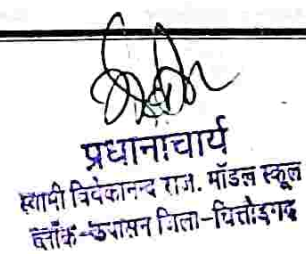 प्रधानाचार्य
स्वामी विवेकानन्द राज. मॉडल स्कूल
ब्लॉक-कपासन जिला-चित्तोड़गढ़